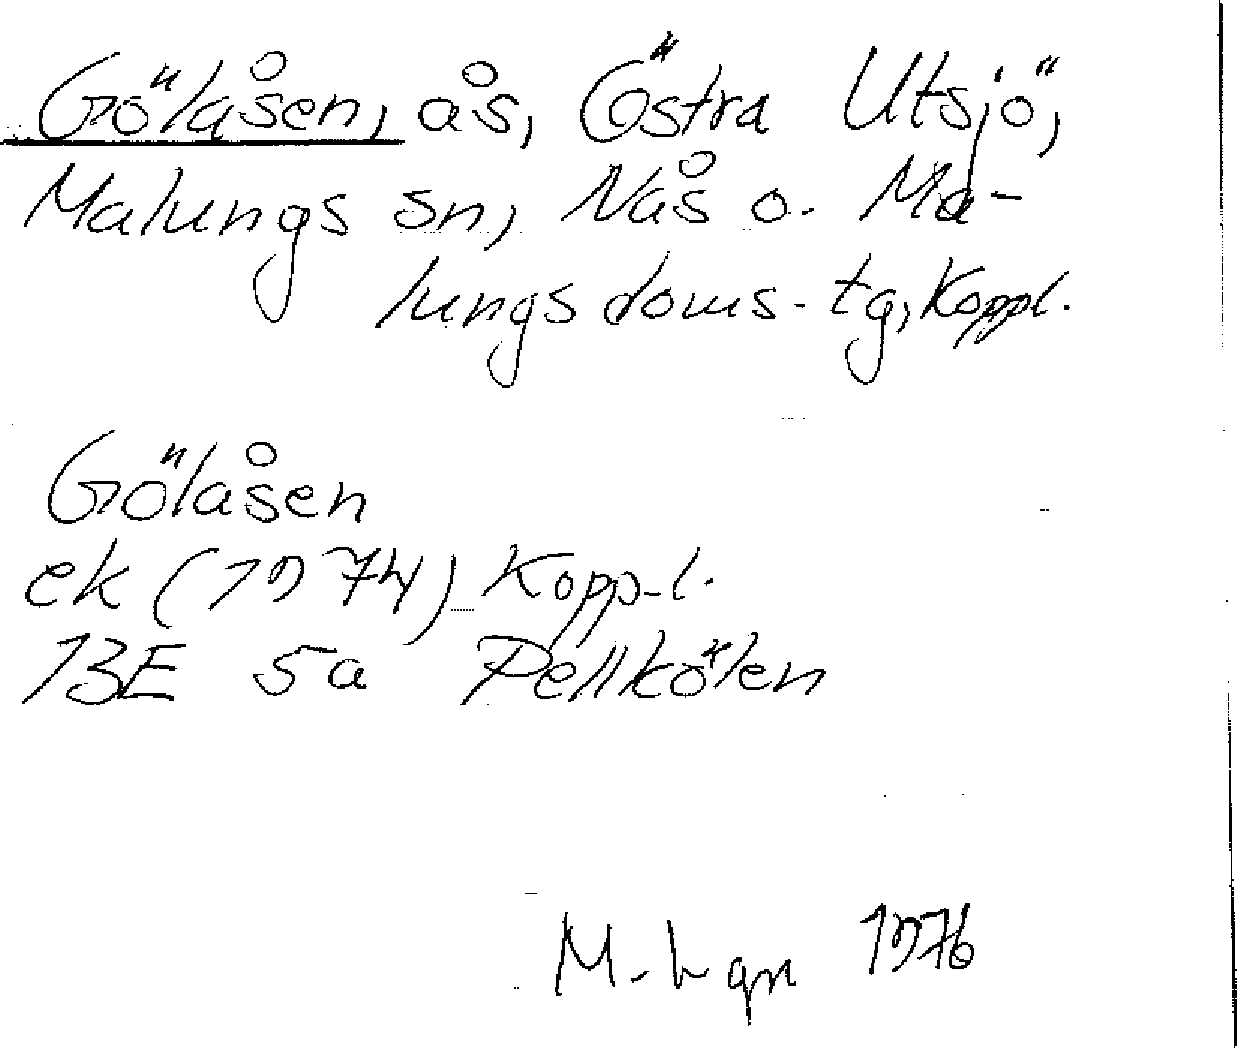 Gölåsen, ås, Östra Utsjö,
Malungs sn, Nås o. Ma-
lungs doms-tg, Koppl.
Gölåsen
ek (1974) Kopp-l.
13E 5a Pellkölen
M. Lgn 1976